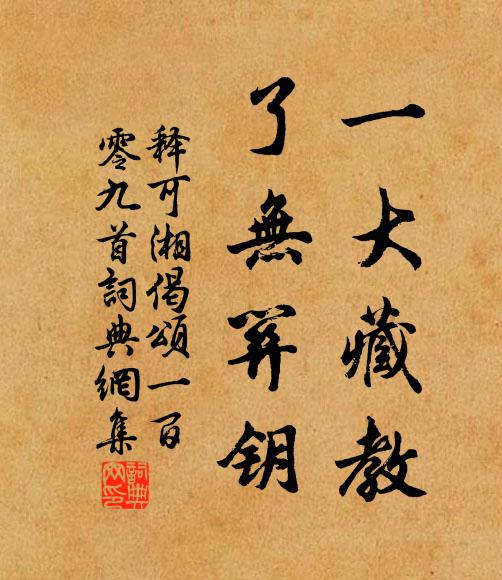 一大藏教
了無筭钥
释可湘偈頌一百
零九首詞典網集
詞典網印